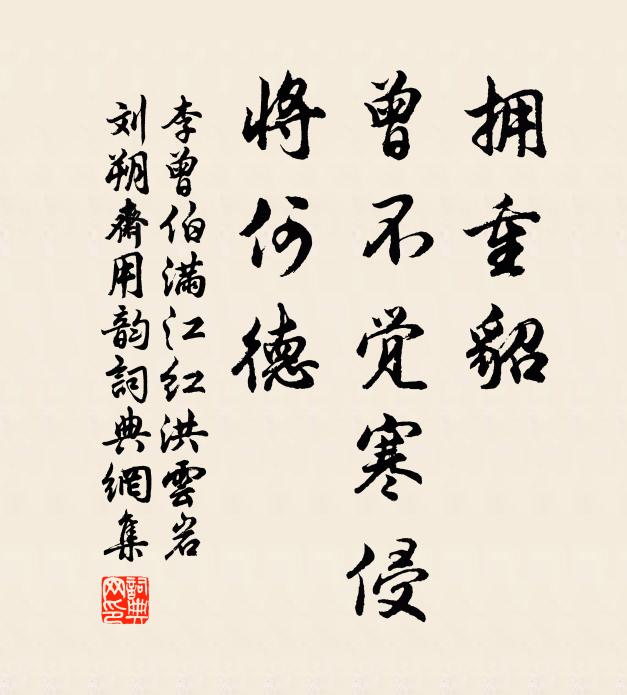 拥重貂
曾不觉寒侵
将何德
李曾伯满江红洪雲岩
刘朔齋用韵詞典網集
詞典网印